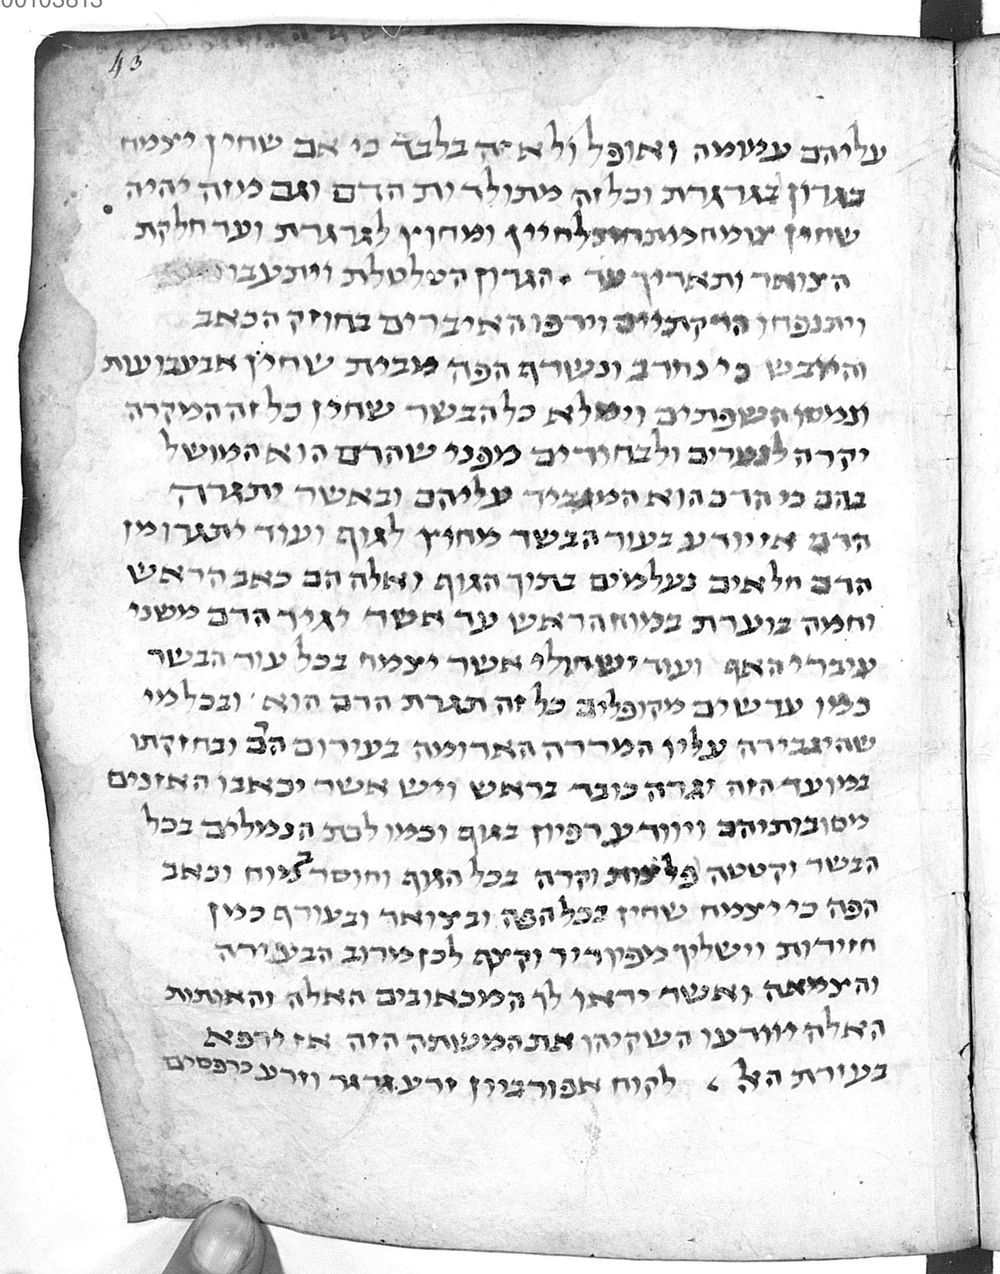 00103813
43
עליהם עששה ואופל ולא זה בלבד כי אם שחין יצמח
בגרון בגרגרת וכל זה מתולדות הדם וגם מזה יהיה
שחין צומח מתחת לחייו ומחוץ לגרגרת ועד חלקת
הצואר ותאריך עד הגרון הטלטלת ויתעבו
ויתנפחו הרקתיים וירפו האיברים בחוזק הכאב
והיובש כי נחרב ונשרף הפה מבית שחין אבעבועות
ונמסו השפתים וימלא כל הבשר שחין כל זה המקרה
יקרה לנערים ולבחורים מפני שהדם הוא המושל
בהם כי הדם הוא המגביר עליהם ובאשר יתגרה
הדם אז יודע בעור הבשר מחוץ לגוף ועוד יתגרו מן
הדם חלאים נעלמים בתוך הגוף ואלה הם כאב הראש
וחמה בוערת במוח הראש עד אשר יגיר הדם משני
עיברי האף ועוד יש חולי אשר יצמח בכל עור הבשר
כמו עדשים מקופלים כל זה תגרת הדם הוא ובכל מי
שהיגבירה עליו המררה האדומה בעירום הם ובחזקתו
במועד הזה יגרה כובד בראש ויש אשר יכאבו האזנים
מסובותיהם ויוודע רפיון בגוף וכמו לכת הנמלים בכל
הבשר וקטטה פלצות וקרה בכל הגוף וחוסר מוח וכאב
הפה כי יצמח שחין בכל הפה ובצואר ובעורף כמין
חזירות וישליך מפיו ריר וקצף לכן מרוב הבעירה
והצמאה ואשר יראו לך המכאובים האלה והאותות
האלה יוודעו השקיהו את המשותה הזה אז ירפא
בעזרת האל לקוח אפורביון זרע גרגר וזרע כרפסים